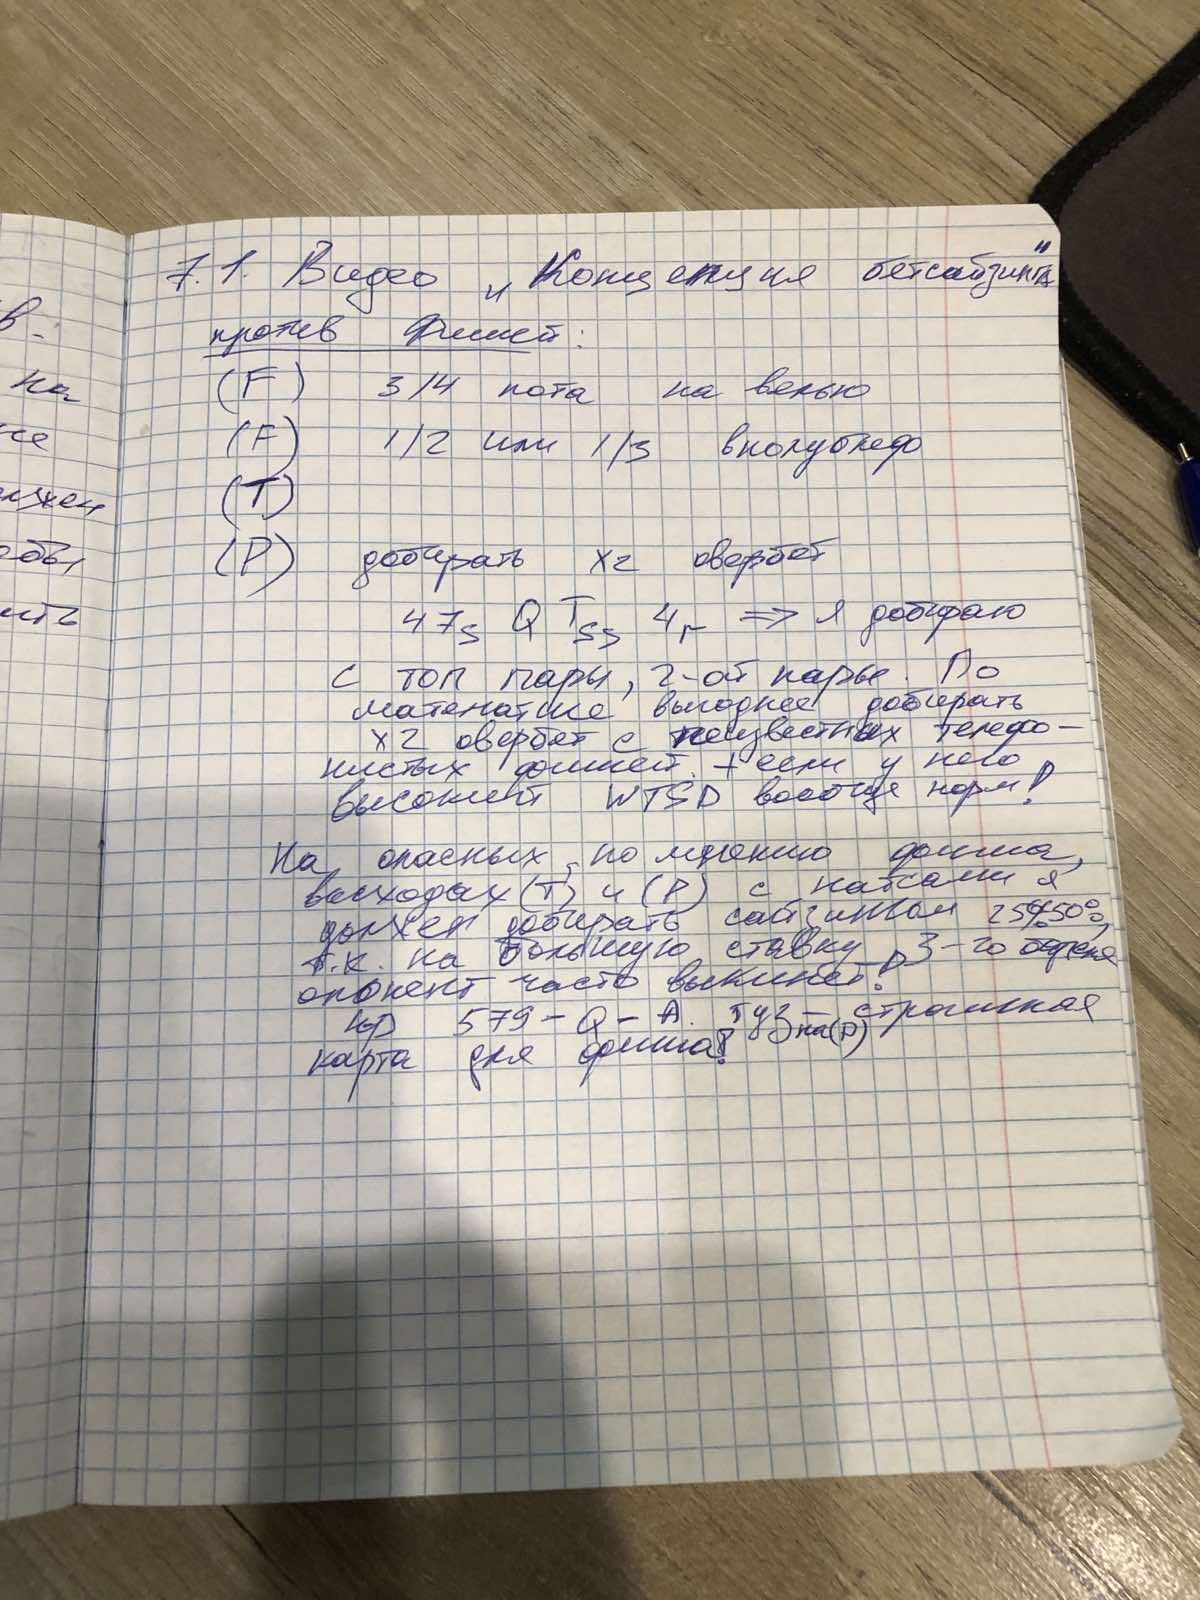 7.1. Видео „Концепция бетсайзинга"
против Фишей:
(F) 3/4 пота на велью
(F) 1/2 или 1/3 вполублеф
(T)
(P) добирать x2 овербет
47s QTss 4r => я добираю
с топ пары, 2-ой пары. По
математике выгоднее добирать
x2 овербет с неизвестных телефо-
нистых фишей. + если у него
высокий WTSD вообще норм!
На опасных, по мнению фиша,
выходах (T) и (P) с натсами я
должен добирать сайзингом 25%50%,
т.к. на большую ставку 3-го
опонент часто выкинет!
579-Q-A. туз на(P) страшная
карта для фиша!
В.
на
должен